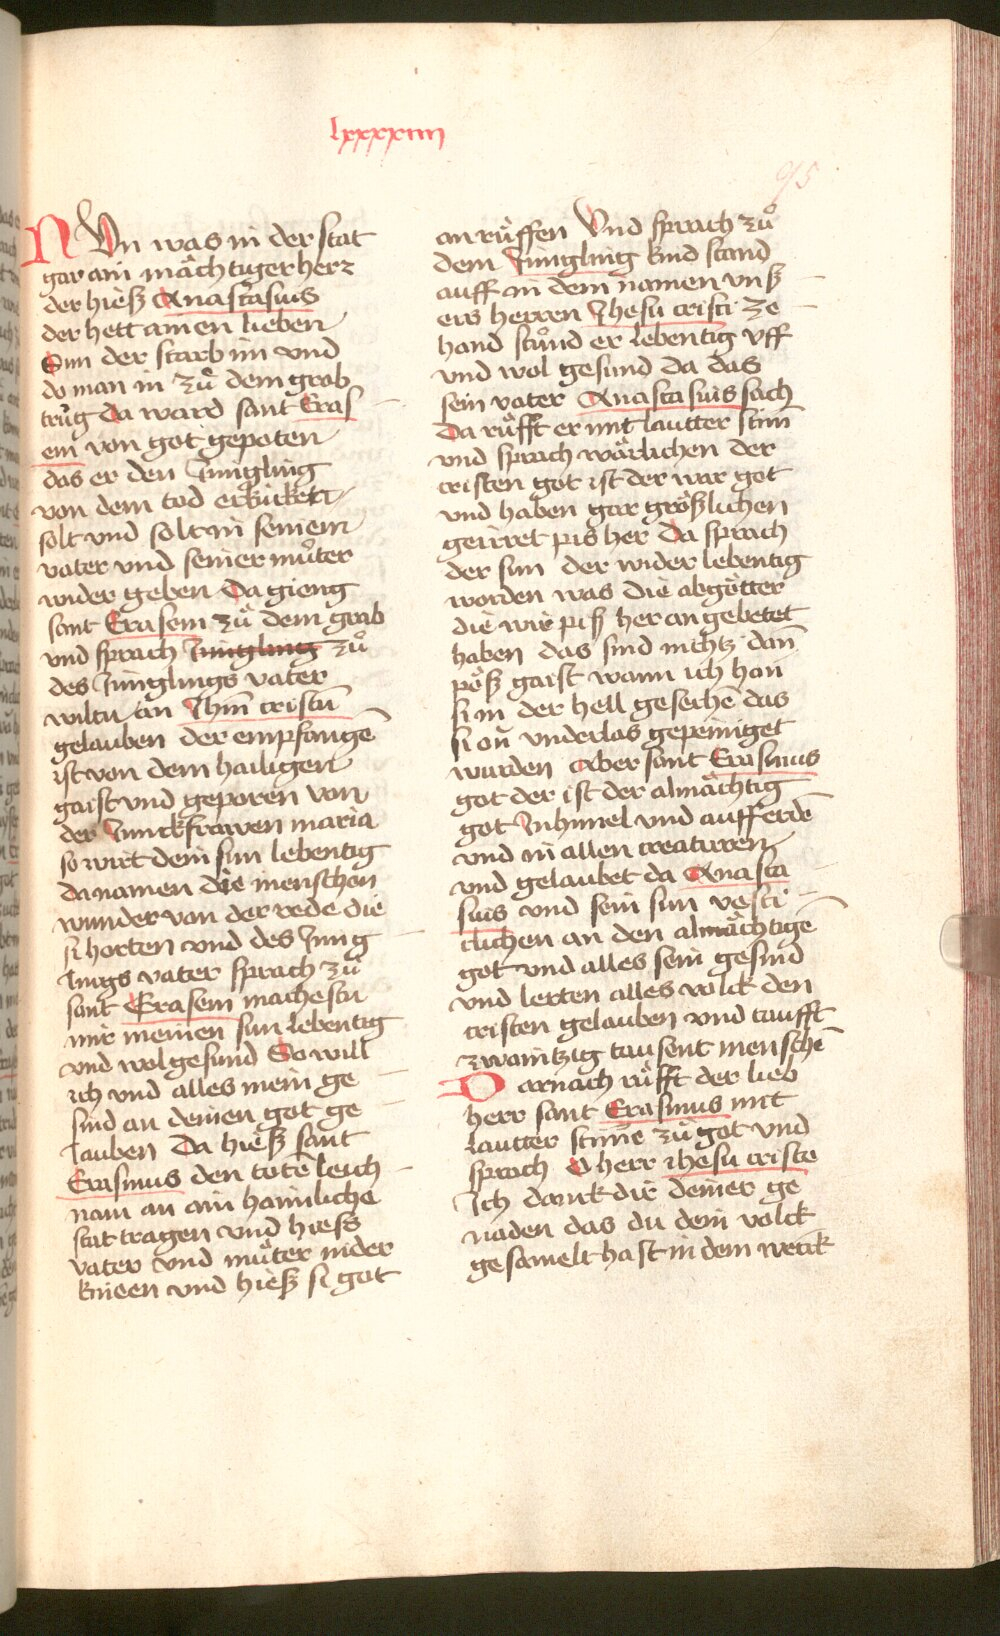 lxxxxiiii
95
NVn was in der stat
gar ain mächtiger herr
der hieß Anastasius
der hett ainen lieben
Sun der starb im und
do man in zů dem grab
trůg Da ward sant Eras
em von got gepoten
das er den Jüngling
von dem tod erkücken
solt und solt in seinem
vater und seiner můter
wider geben Da gieng
sant Erasem zů dem grab
und sprach Jüngling zů
des Jünglings vater
wiltu an Jhm̄ cristū
gelauben der empfangē
ist von dem hailigen
gaist und geporen von
der Junckfrawen maria
so wirt dein sun lebentig
da namen die menschen
wunder von der rede die
si horten und des Jüng
lings vater sprach zů
sant Erasem machestu
mir meinen sun lebentig
und wol gesund So will
ich und alles mein ge
sind an deinen got ge
lauben Da hieß sant
Erasmus den totē leich
nam an ain hamliche
stat tragen und hiess
vater und můter nider
knieen und hieß si got
an růffen Vnd sprach zů
dem Jüngling kind stand
auff in dem namen unß
ers herren Jhesu cristi ze
hand stůnd er lebentig uff
und wol gesund da das
sein vater Anastasius sach
Da růfft er mit lautter stim̄
und sprach wärlichen der
cristen got ist der war got
und haben gar größlichen
geirret pis her Da sprach
der sun der wider lebentig
worden was die abgötter
die wir piß her angebetet
haben das sind nichtz dan̄
pöß gaist wann ich han
si in der hell gesechē das
si on̄ underlas gepeiniget
wurden Aber sant Erasmus
got der ist der almächtig
got Jn himel und auff erdē
und in allen creaturen
und gelaubet da Anasta
sius und sein sun vesti
clichen an den almächtigē
got und alles sein gesind
und lerten alles volck den
cristen gelauben und taufft
zwaintzig tausent menschē
Darnach růfft der lieb
herr sant Erasmus mit
lautter stim̄e zů got und
sprach O herr ihesu criste
Ich danck dir deiner ge
naden das du dein volck
gesamelt hast in dem werck